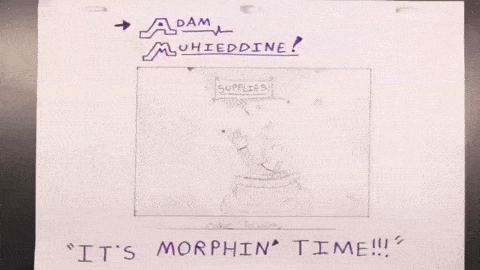 ADAM
MUHIEDDINE!
SUPPLIES!
"IT'S MORPHIN' TIME!!!"